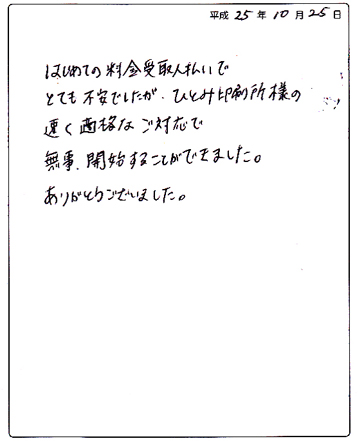 平成 25 年 10 月 25 日
はじめての料金受取人払いで
とても不安でしたが、ひとみ印刷所様の
速く適格なご対応で
無事、開始することができました。
ありがとうございました。